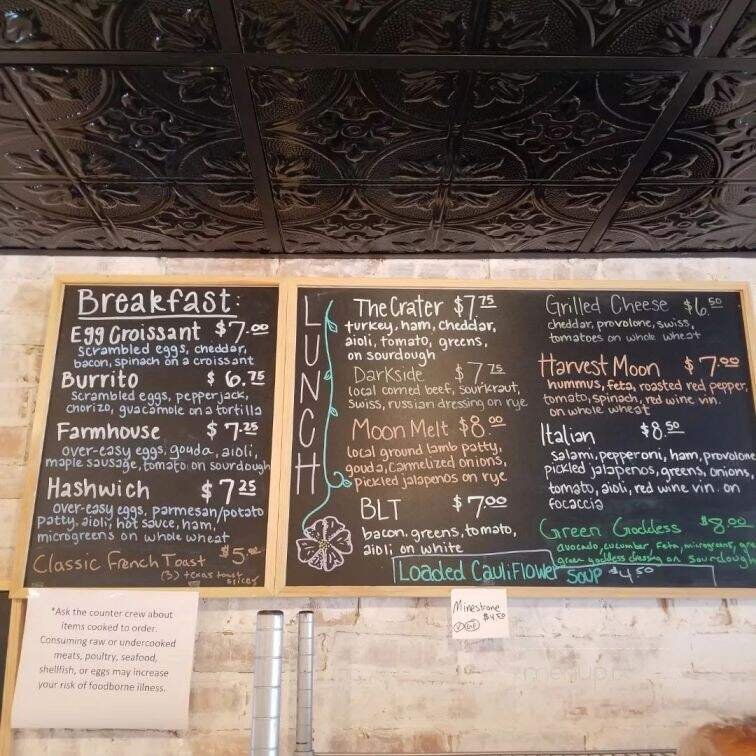 Breakfast:
Egg Croissant $7.00
scrambled eggs, cheddar,
bacon, spinach on a croissant
Burrito $6.75
Scrambled eggs, pepperjack,
chorizo, guacamole on a tortilla
Farmhouse $7.25
over-easy eggs, gouda, aioli,
maple sausage, tomato on sourdough
Hashwich $7.25
over-easy eggs, parmesan/potato
patty, aioli, hot sauce, ham,
microgreens on whole wheat
Classic French Toast $5.00
(3) texas toast
slices
*Ask the counter crew about
items cooked to order.
Consuming raw or undercooked
meats, poultry, seafood,
shellfish, or eggs may increase
your risk of foodborne illness.
LUNCH
The Crater $7.75
turkey, ham, cheddar,
aioli, tomato, greens,
on sourdough
Darkside $7.75
local corned beef, sourkraut,
Swiss, russian dressing on rye
Moon Melt $8.00
local ground lamb patty,
gouda, carmelized onions,
pickled jalapenos on rye
BLT $7.00
bacon, greens, tomato,
aioli on white
Grilled Cheese $6.50
cheddar, provolone, swiss,
tomatoes on whole wheat
Harvest Moon $7.00
hummus, feta, roasted red pepper,
tomato, spinach, red wine vin.
on whole wheat
Italian $8.50
salami, pepperoni, ham, provolone
pickled jalapenos, greens, onions,
tomato, aioli, red wine vin. on
focaccia
Green Goddess $8.00
avocado, cucumber, feta, microgreens,
green goddess dressing on Sourdough
Loaded Cauliflower Soup $4.50
Minestrone
$4.50